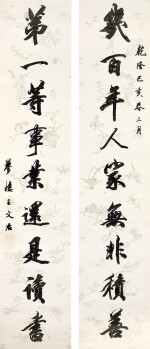 乾隆己亥春三月
幾百年人家無非積善
第一等事業還是讀書
夢樓王文治